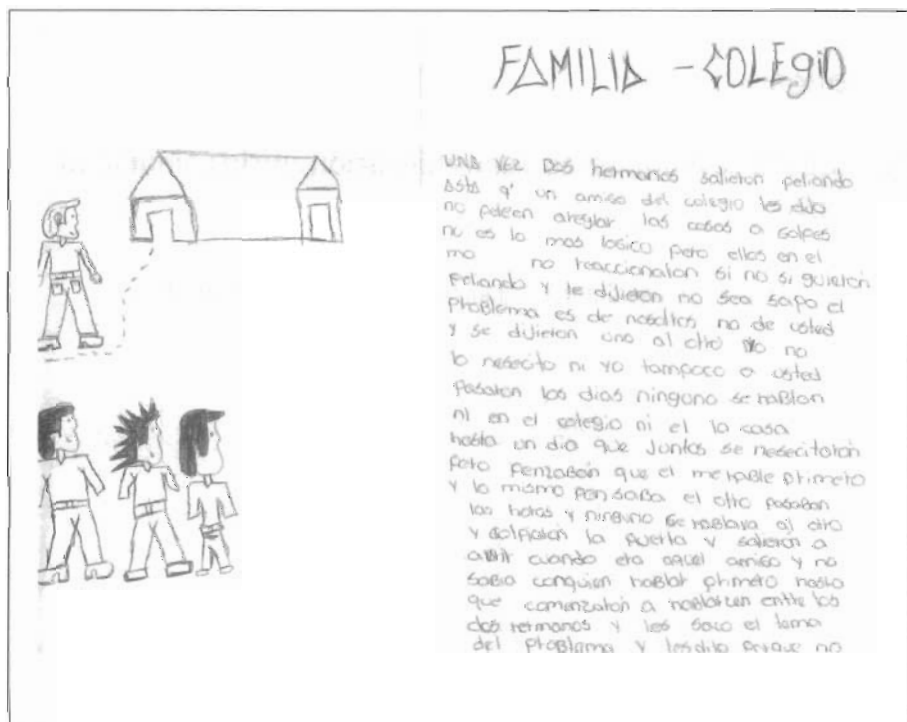 FAMILIA - COLEGIO
UNA VEZ DOS hermanos salieron peliando
asta q' un amigo del colegio les dijo
no peleen areglar las cosas a golpes
no es lo mas logico pero ellos en el
mo no reaccionaron si no si guieron
peliando y le dijieron no sea sapo el
problema es de nosotros no de usted
y se dijieron uno al otro yo no
lo nesecito ni yo tampoco a usted
pasaron los dias ninguno se hablan
ni en el colegio ni el la casa
hasta un dia que juntos se nesecitaron
pero penzaban que el me hable primero
y lo mismo pensaba el otro pasaban
las horas y ninguno se hablava al otro
y golpiaron la puerta y salieron a
abrir cuando era aquel amigo y no
sabia conquien hablar primero hasta
que comenzaron a hablarzen entre los
dos hermanos y les saco el tema
del problema y lesdijo porque no